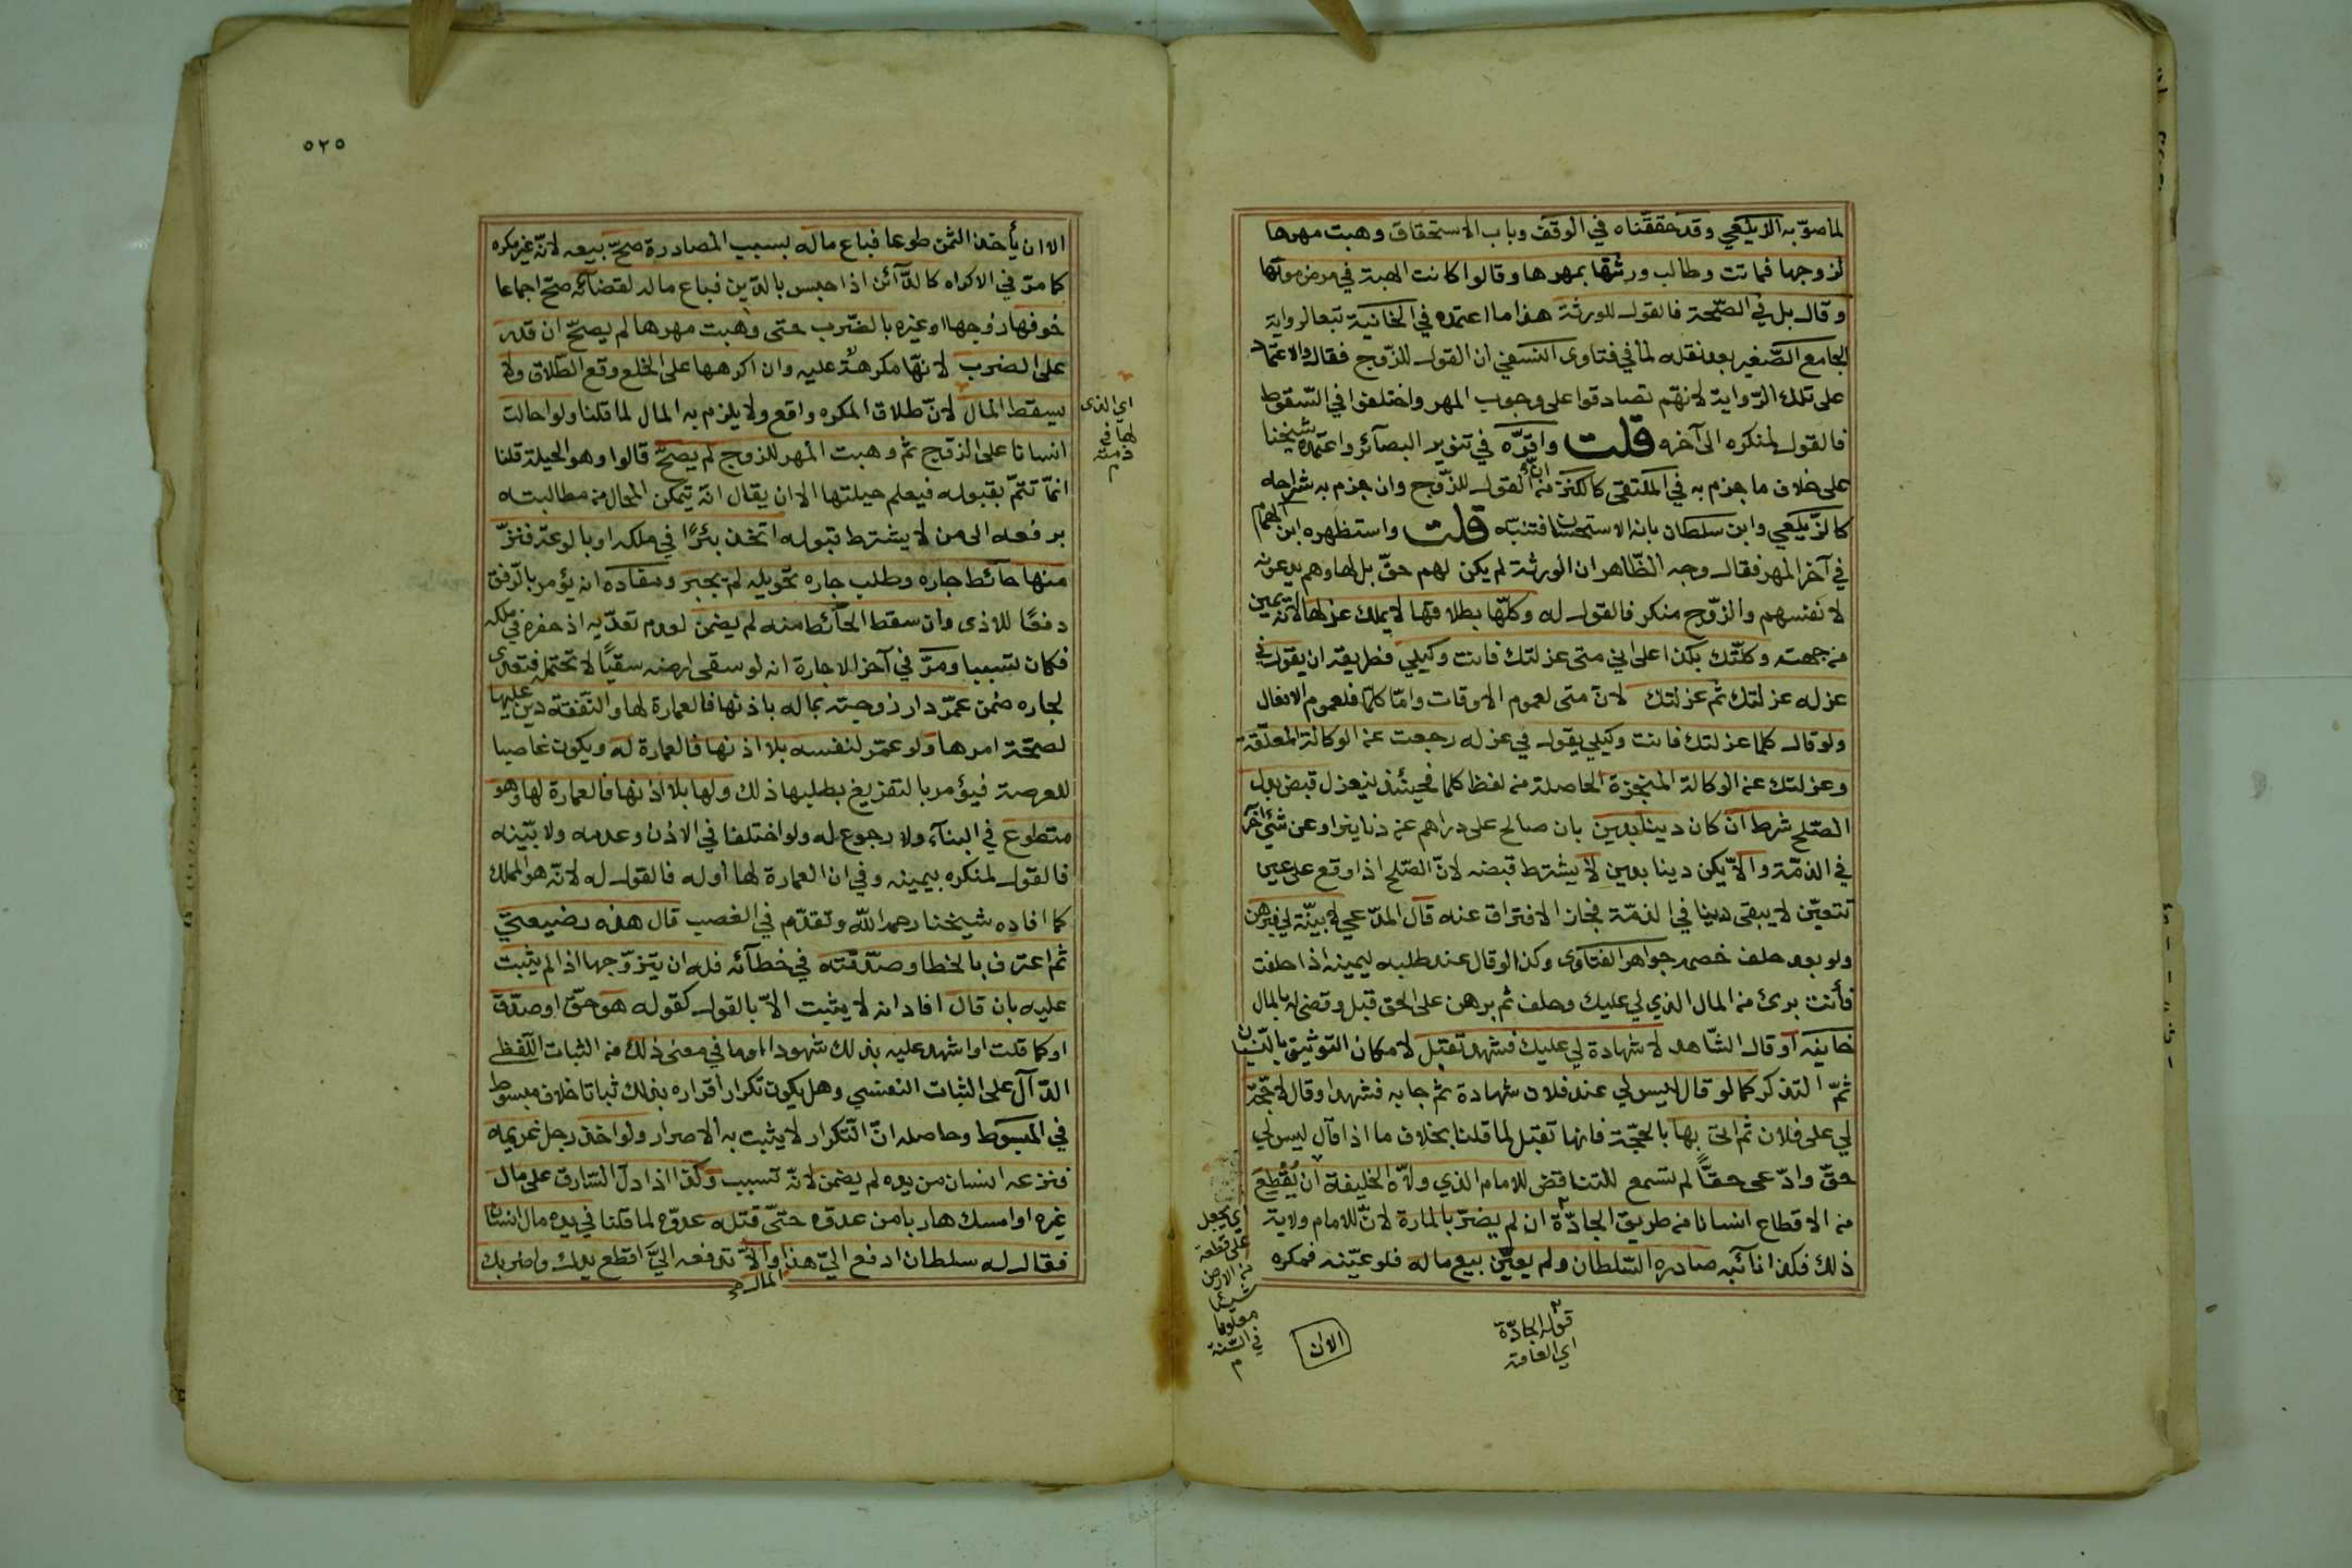 لما صوّبه الزيلعي وقد حققناه في الوقف وباب الاستحقاق وهبت مهرها
لزوجها فماتت وطالب ورثتها بمهرها وقالوا كانت الهبة في مرض موتها
وقال بل في الصّحة فالقول للورثة هذا ما اعتمده في الخانية تبعا لرواية
الجامع الصّغير بعد نقله لما في فتاوى النسفي ان القول للزّوج فقال والاعتماد
على تلك الرّواية لانهّم تصادقوا على وجوب المهر واختلفوا في السّقوط
فالقول لمنكره الى آخره قلت واقرّه في تنوير البصآئر واعتمده شيخنا
على خلاف ما جزم به في الملتقى كالكنز من ان القول للزّوج وان جزم به شراحه
كالزّيلعي وابن سلطان بانه الاستحسان فتنبّه قلت واستظهره ابن الهمام
في آخر المهر فقال وجه الظّاهر ان الورثة لم يكن لهم حقّ بل لها وهم يدعونه
لانفسهم والزّوج منكر فالقول له وكلّها بطلاقها لا يملك عزلها لانّه يمين
من جهته وكلّتك بكذا على اني متى عزلتك فانت وكيلي فطريقه ان يقول في
عزله عزلتك ثم عزلتك لانّ متى لعموم الاوقات وامّا كلّما فلعموم الافعال
ولو قال كلما عزلتك فانت وكيلي يقول في عزله رجعت عن الوكالة المعلّقة
وعزلتك عن الوكالة المنجزة الحاصلة من لفظ كلما فحينئذ ينعزل قبض بدل
الصّلح شرط ان كان دينا بدين بان صالح على دراهم عن دنانير او عن شئ آخر
في الذمّة والاّ يكن دينا بدين لا يشترط قبضه لانّ الصّلح اذا وقع على عين
تتعيّن لا يبقى دينا في الذمّة فجاز الافتراق عنه قال المدّعي لا بيّنة لي فبرهن
ولو بعد حلف خصمه جواهر الفتاوى وكذا لو قال عند طلبه ليمينه اذا حلفت
فأنت برئ من المال الذي لي عليك وحلف ثم برهن على الحق قبل وقضى له بالمال
خانيه او قال الشّاهد لا شهادة لي عليك فشهد تقبل لامكان التوثيق بالنّسيان
ثمّ التذكر كما لو قال ليس لي عند فلان شهادة ثم جا به فشهد او قال لا حجّة
لي على فلان ثم اتى بها بالحجّة فانها تقبل لما قلنا بخلاف ما اذا قال ليس لي
حقّ وادّعى حقًّا لم تسمع للتناقض للامام الذي ولاّه الخليفة ان يُقْطِعَ
من الاقطاع انسانا من طريق الجادّة ان لم يضرّ بالمارة لانّ للامام ولاية
ذلك فكذا نائبه صادره السّلطان ولم يعيّن بيع ماله فلو عيّنه فمكره
اي يجعل
على قطعة
من الارض
شيئا
معلوما
في السّنة
م
الا ان
قوله الجادّة
اي العامة
٥٢٥
الا ان يأخذ الثمن طوعا فباع ماله بسبب المصادرة صحّ بيعه لانّه غير مكره
كما مرّ في الاكراه كالدّآئن اذا حبس بالدّين فباع ماله لقضائه صحّ اجماعا
خوفها زوجها او غيره بالضّرب حتى وهبت مهرها لم يصحّ ان قدر
على الضرب لانهّا مكرهة عليه وان اكرهها على الخلع وقع الطّلاق ولا
يسقط المال لانّ طلاق المكره واقع ولا يلزم به المال لما قلنا ولو احالت
انسانا على الزوّج ثم وهبت المهر للزوج لم يصحّ قالوا وهو الحيلة قلنا
انمّا تتمّ بقبوله فيعلم حيلتها الا ان يقال انه يتمكن المحال من مطالبته
برفعه الى من لا يشترط قبوله اتخذ بئرًا في ملكه او بالوعة فنزّ
منها حائط جاره وطلب جاره تحويله لم يجبر ومفاده انه يؤمر بالرّفق
دفعًا للاذى وان سقط الحآئط منه لم يضمن لعدم تعدّيه اذ حفره في ملكه
فكان تسببيا ومرّ في آخر الاجارة انه لو سقى ارضه سقيًا لا تحتمله فتعدى
لجاره ضمن عمّر دار زوجته بماله باذنها فالعمارة لها والنّفقة دين عليها
لصحّة امرها ولو عمّر لنفسه بلا اذنها فالعمارة له ويكون غاصبا
للعرصة فيؤمر بالتفريغ بطلبها ذلك ولها بلا اذنها فالعمارة لها وهو
متطوع في البناء ولا رجوع له ولو اختلفا في الاذن وعدمه ولا بيّنه
فالقول لمنكره بيمينه وفي ان العمارة لها أو له فالقول له لانّه هو المملك
كما افاده شيخنا رحمه اللّه وتقدّم في الغصب قال هذه رضيعتيّ
ثم اعترف بالخطا وصدّقته في خطآئه فله ان يتزوّجها اذا لم يثبت
عليه بان قال افاد انه لا يثبت الاّ بالقول كقوله هو حقّ او صدق
او كما قلت او اشهد عليه بذلك شهودا او ما في معنى ذلك من الثبات اللّفظي
الدّآل على الثبات النفسي وهل يكون تكرار اقراره بذلك ثباتا خلاف مبسوط
في المبسوط وحاصله انّ التّكرار لا يثبت به الاصرار ولو اخذ رجل غريمه
فنزعه انسان من يده لم يضمن لانّه تسبب وكذا اذا دلّ السّارق على مال
غيره او امسك هاربا من عدوّه حتىّ قتله عدوّه لما قلنا في يده مال انسان
فقال له سلطان ادفع اليّ هذا المال والاّ تدفعه اليَّ اقطع يدك واضربك
اي الذي
لها في
ذمته
م